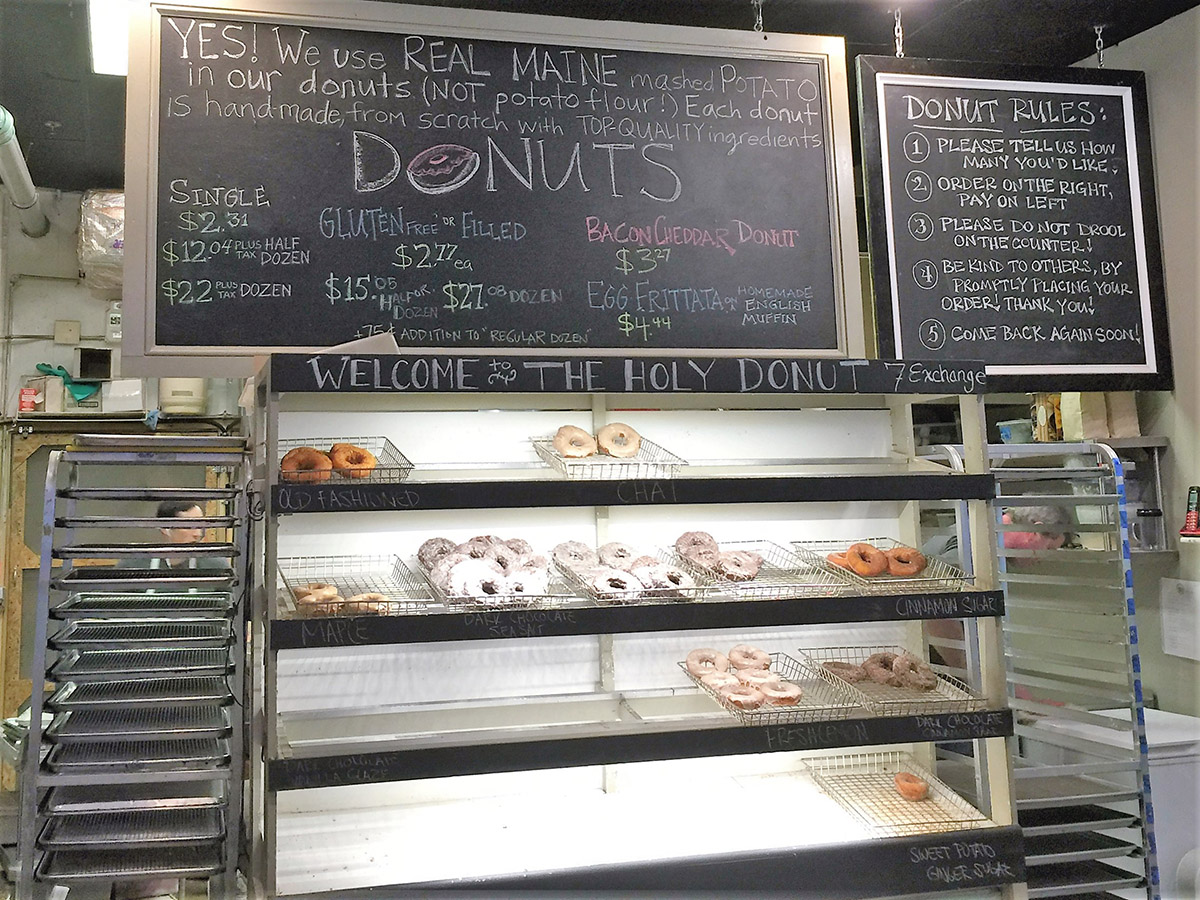 YES! We use REAL MAINE mashed POTATO
in our donuts (NOT potato flour!) Each donut
IS handmade, from scratch with TOP-QUALITY ingredients
DONUTS
SINGLE
$2.31
$12.04 PLUS TAX HALF DOZEN
$22 PLUS TAX DOZEN
GLUTEN FREE OR FILLED
$2.77 ea
$15.05 HALF DOZEN
$27.08 DOZEN
+75¢ ADDITION TO "REGULAR DOZEN"
BACON CHEDDAR DONUT
$3.27
EGG FRITTATA ON HOMEMADE
ENGLISH
MUFFIN
$4.44
DONUT RULES:
1 PLEASE TELL US HOW
MANY YOU'D LIKE.
2 ORDER ON THE RIGHT,
PAY ON LEFT
3 PLEASE DO NOT DROOL
ON THE COUNTER!
4 BE KIND TO OTHERS, BY
PROMPTLY PLACING YOUR
ORDER! THANK YOU!
5 COME BACK AGAIN SOON!
WELCOME to THE HOLY DONUT 7 Exchange
OLD FASHIONED
CHAI
MAPLE
DARK CHOCOLATE
SEA SALT
CINNAMON SUGAR
DARK CHOCOLATE
VANILLA GLAZE
FRESH LEMON
DARK CHOCOLATE
CINNAMON SUGAR
SWEET POTATO
GINGER SUGAR